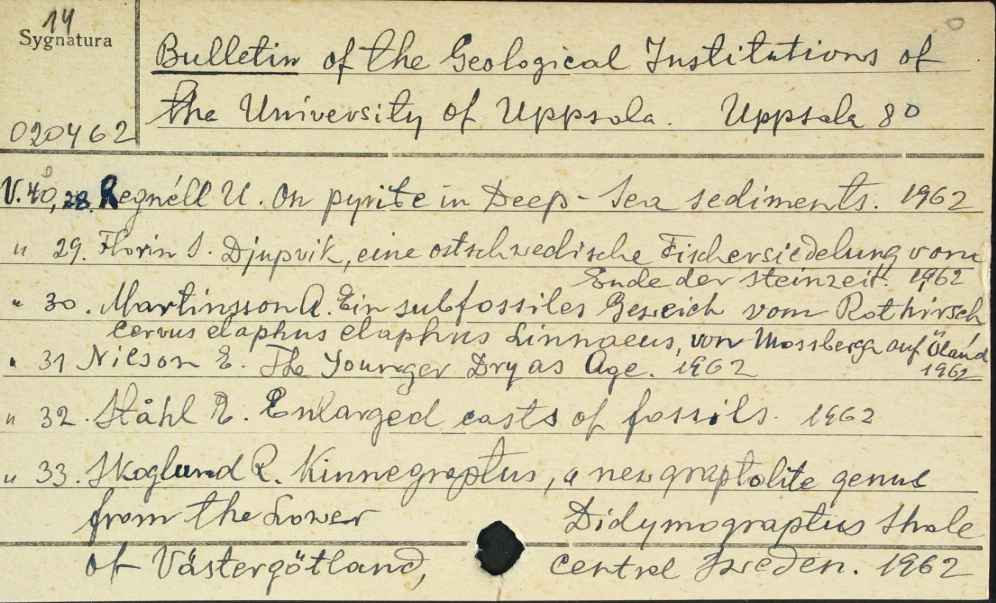 14
Sygnatura
020462
Bulletin of the Geological Institutions of
the University of Uppsala. Uppsala 80
V. 40, 28. Regnéll U. On pyrite in Deep-Sea sediments. 1962
" 29. Florin S. Djupvik, eine ostschwedische Fischersiedelung vom
Ende der steinzeit. 1962
" 30. Martinsson A. Ein subfossiles Geweich vom Rothirsch
Cervus elaphus elaphus Linnaeus, von Mossberga auf Öland
1962
" 31 Nilson E. The Younger Dryas Age. 1962
" 32. Ståhl E. Enlarged casts of fossils. 1962
" 33. Skoglund R. Kinnegraptus, a new graptolite genus
from the Lower Didymograptus Shale
of Västergötland, central Sweden. 1962